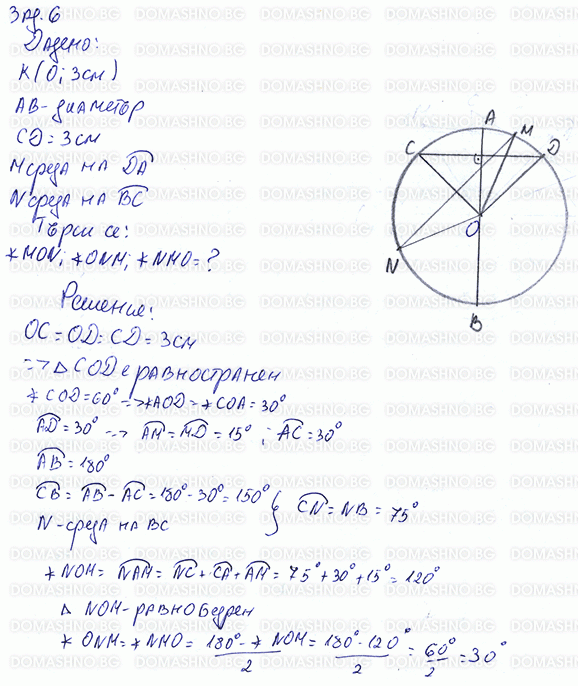 Зад. 6
Дадено:
K(O; 3см)
AB - диаметър
CD = 3см
M среда на DA
N среда на BC
Търси се:
∢MON; ∢ONM; ∢NMO = ?
Решение:
OC = OD = CD = 3см
--> △ COD е равностранен
∢ COD = 60° --> ∢AOD = ∢COA = 30°
AD = 30° --> AM = MD = 15° ; AC = 30°
AB = 180°
CB = AB - AC = 180° - 30° = 150° } CN = NB = 75°
N - среда на BC
∢ NOM = NAM = NC + CA + AM = 75° + 30° + 15° = 120°
△ NOM - равнобедрен
∢ ONM = ∢ NMO = 180° - ∢ NOM / 2 = 180° - 120° / 2 = 60° / 2 = 30°
A
M
C
D
O
N
B
DOMASHNO.BG